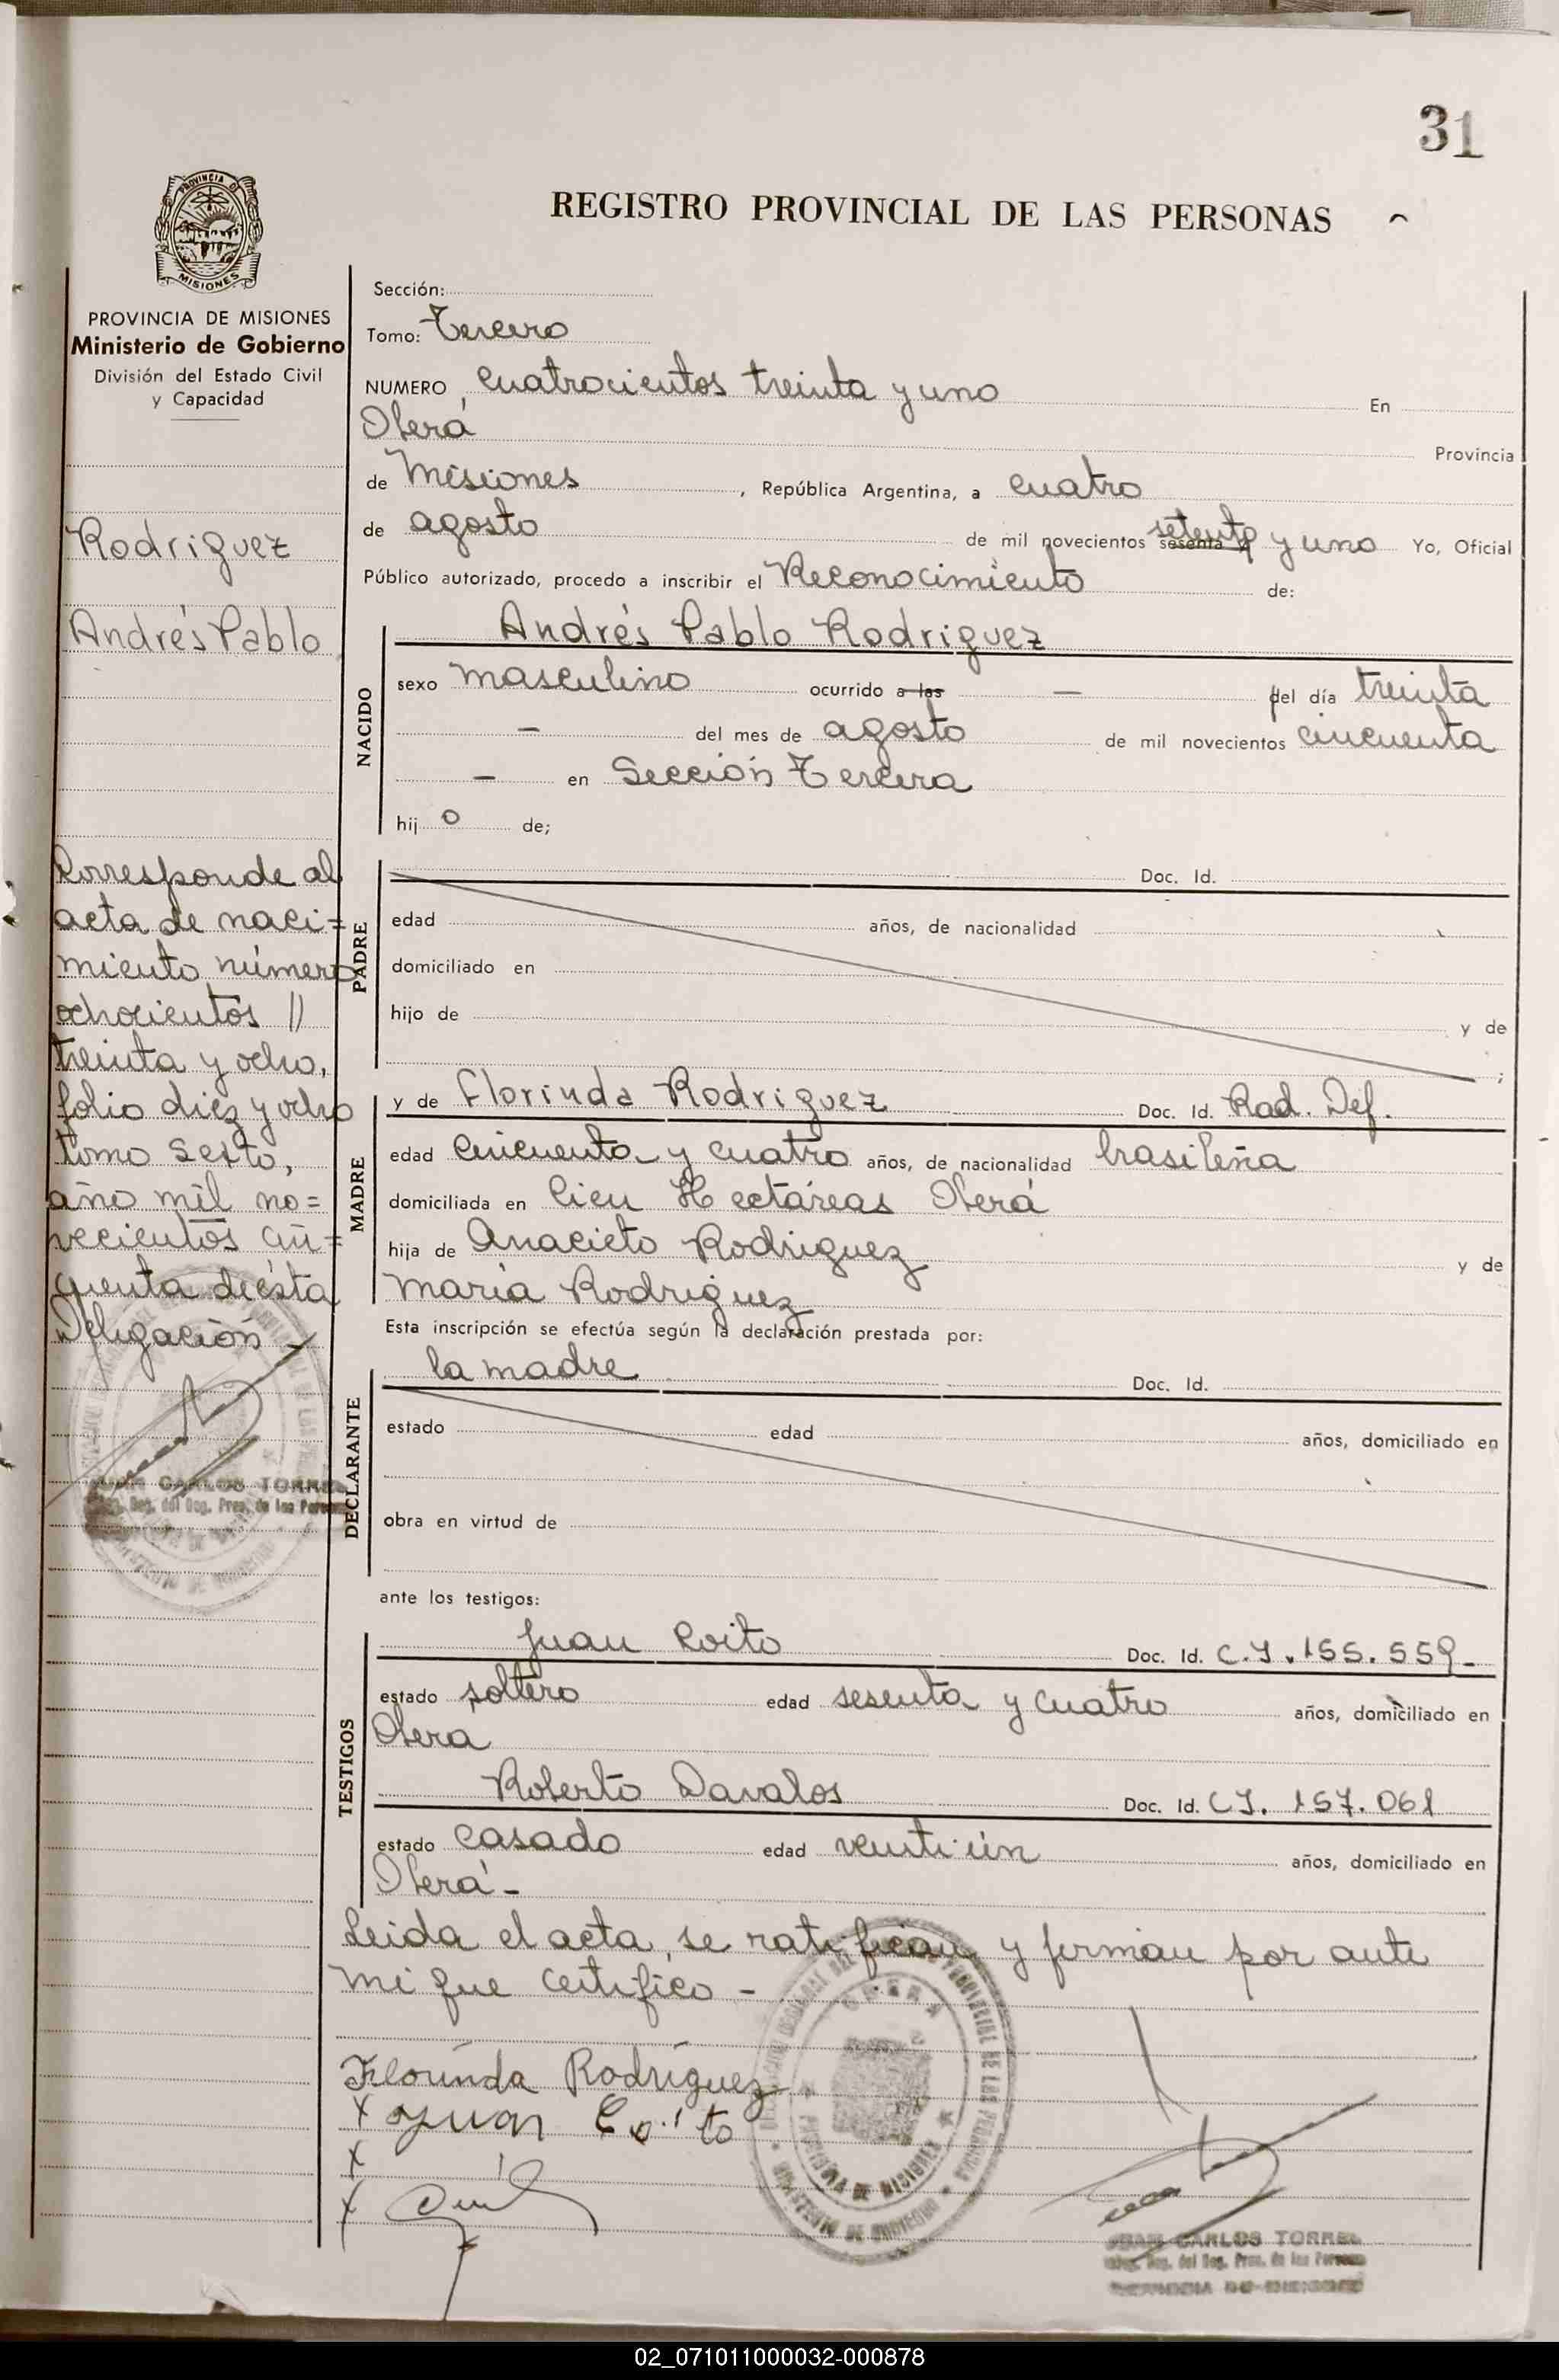 31
REGISTRO PROVINCIAL DE LAS PERSONAS
PROVINCIA DE MISIONES
Ministerio de Gobierno
División del Estado Civil
y Capacidad
Rodriguez
Andrés Pablo
Corresponde al
acta de naci=
miento número
ochocientos //
treinta y ocho,
folio diez y ocho
tomo sexto,
año mil no=
vecientos cin=
cuenta de ésta
Delegación
JUAN CARLOS TORRES
Sección:
Tomo: Tercero
NUMERO cuatrocientos treinta y uno En
Oberá Provincia
de Misiones, República Argentina, a cuatro
de agosto de mil novecientos sesenta y setenta y uno Yo, Oficial
Público autorizado, procedo a inscribir el Reconocimiento de:
NACIDO
Andrés Pablo Rodriguez
sexo masculino ocurrido a las — del día treinta
— del mes de agosto de mil novecientos cincuenta
— en Sección Tercera
hijo de;
PADRE
Doc. Id.
edad años, de nacionalidad
domiciliado en
hijo de y de
;
MADRE
y de Florinda Rodriguez Doc. Id. Rad. Def.
edad cincuenta y cuatro años, de nacionalidad brasileña
domiciliada en Cien Hectáreas Oberá
hija de Anacleto Rodriguez y de
María Rodriguez
Esta inscripción se efectúa según la declaración prestada por:
DECLARANTE
la madre Doc. Id.
estado edad años, domiciliado en
obra en virtud de
ante los testigos:
TESTIGOS
Juan Coito Doc. Id. C.I. 155.559-
estado soltero edad sesenta y cuatro años, domiciliado en
Obera
Roberto Davalos Doc. Id. C.I. 157.061
estado casado edad veinti ún años, domiciliado en
Oberá-
Leida el acta, se ratifican y firman por ante
mi que certifico -
Florinda Rodríguez
x Juan Coito
x
x
JUAN CARLOS TORRES
02_071011000032-000878